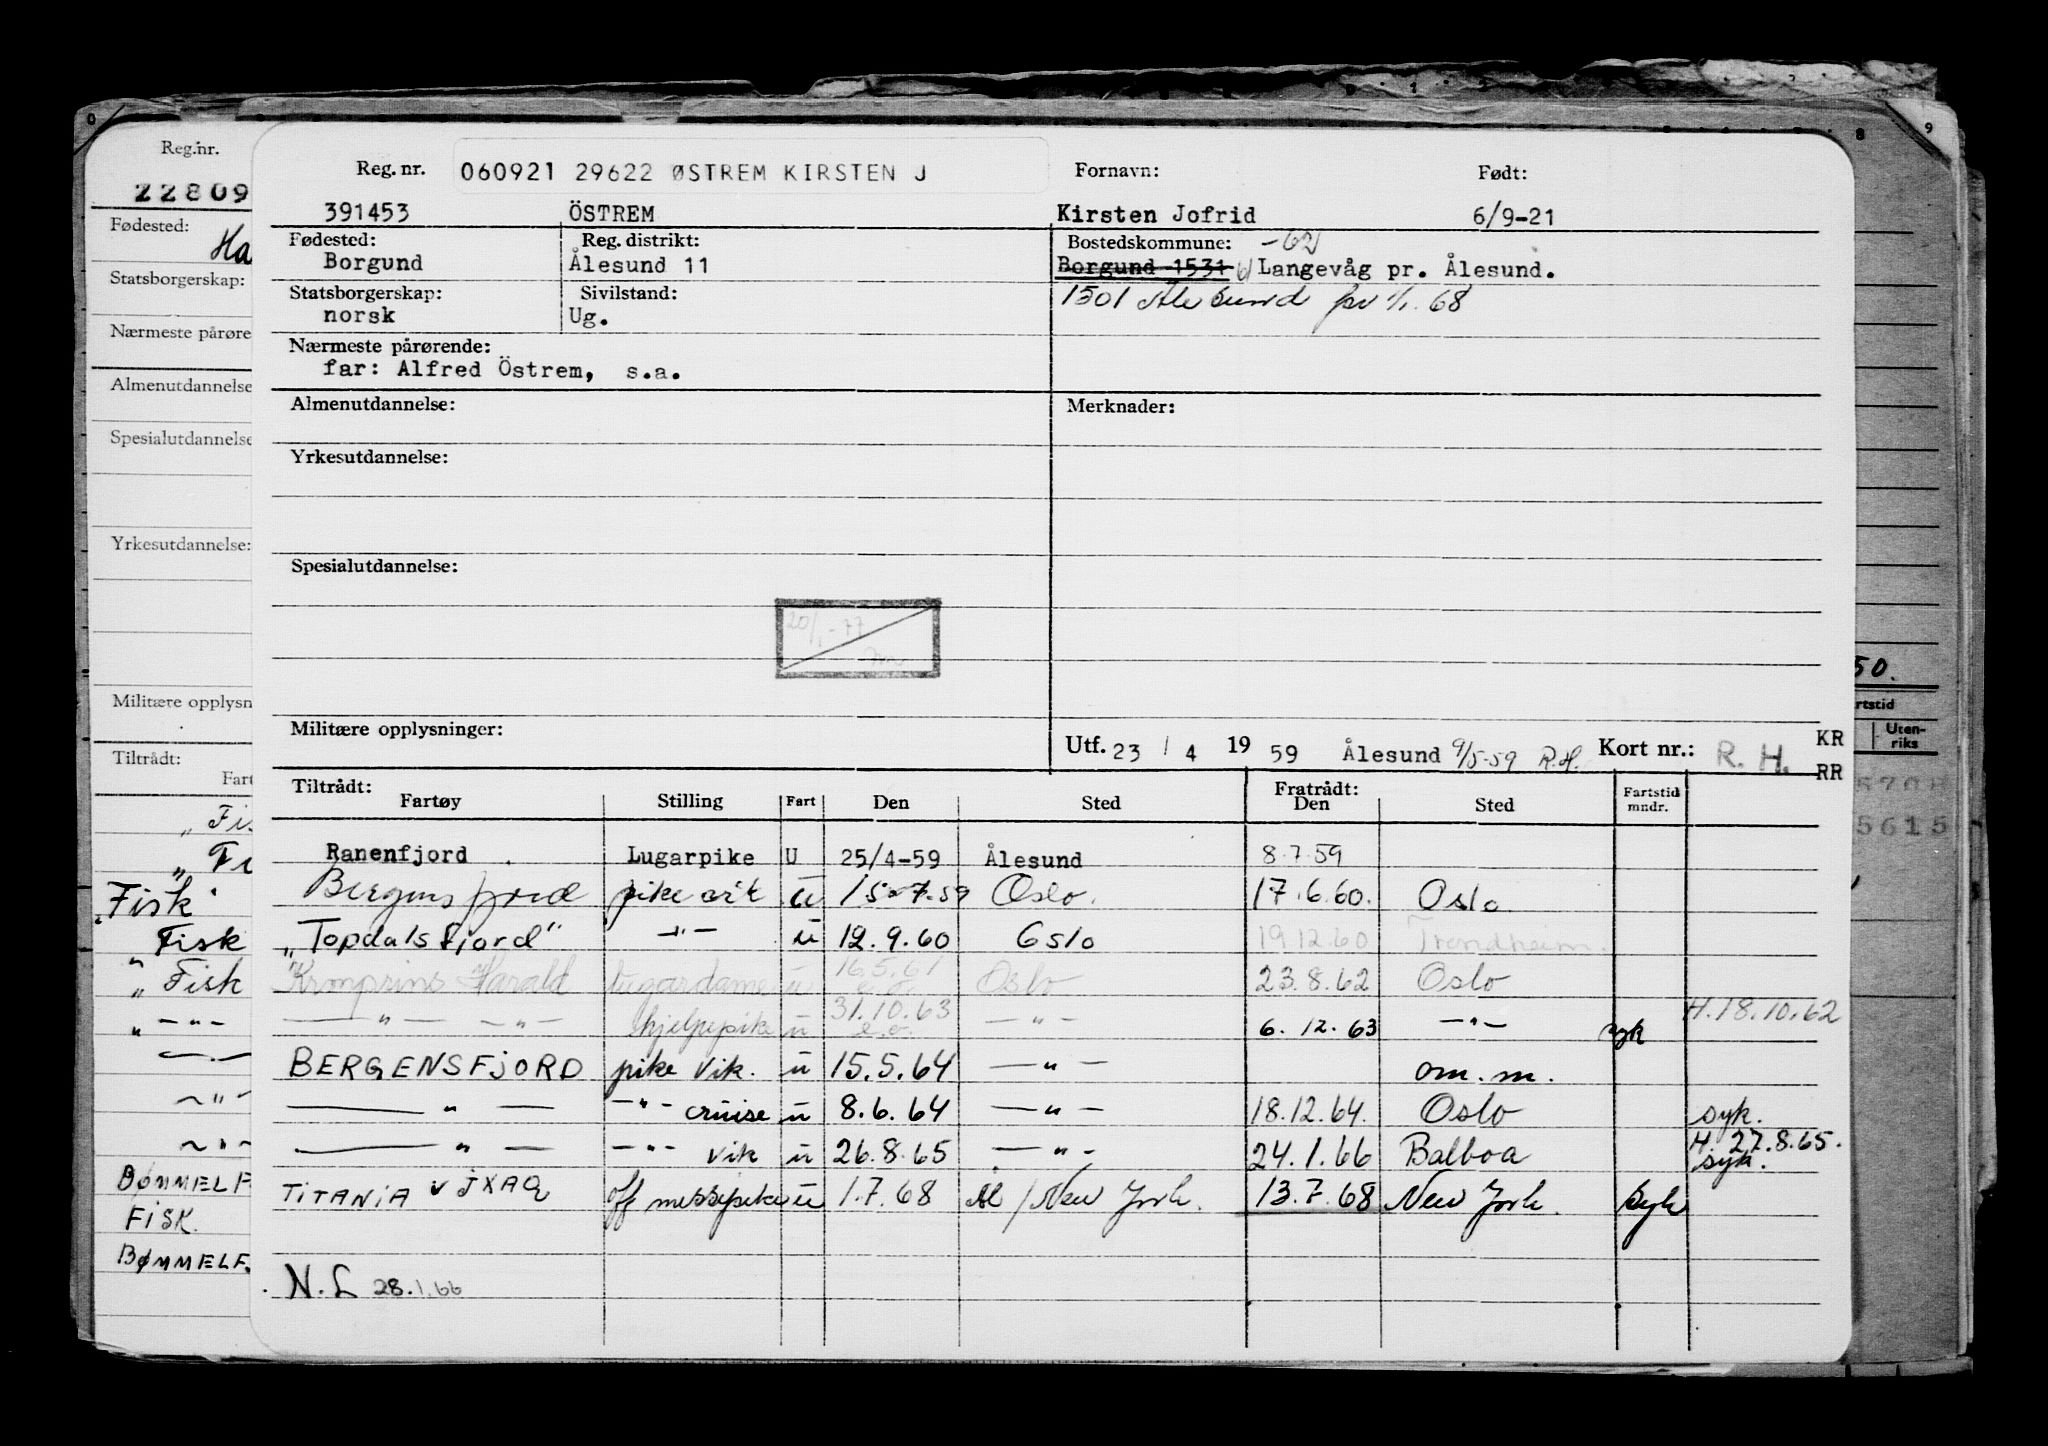 Reg. nr. 060921 29622 ØSTREM KIRSTEN J Fornavn: Født:
391453 ÖSTREM Kirsten Jofrid 6/9-21
Fødested: Reg. distrikt: Bostedskommune: -62
Borgund Ålesund 11 Borgund 1531 Langevåg pr. Ålesund.
Statsborgerskap: Sivilstand: 1501 Ålesund pr 1/1. 68
norsk Ug.
Nærmeste pårørende:
far: Alfred Östrem, s.a.
Almenutdannelse: Merknader:
Yrkesutdannelse:
Spesialutdannelse:
20/1-77
Militære opplysninger:
Utf. 23 / 4 19 59 Ålesund 9/5-59 R.H. Kort nr.: R. H. KR
RR
Tiltrådt: Fratrådt:
Fartøy Stilling Fart Den Sted Den Sted Fartstid mndr.
Ranenfjord Lugarpike U 25/4-59 Ålesund 8.7.59
Bergensfjord pike vik u 15.7.59 Oslo. 17.6.60. Oslo
"Topdalsfjord" -"- u 12.9.60 Oslo 19.12.60 Trondheim.
"Kronprins Harald lugardame u 16.5.61 e.o. Oslo 23.8.62 Oslo
-"- -"- hjelpepike u 31.10.63 e.o. -"- 6.12.63 -"- syk H.18.10.62
BERGENSFJORD pike vik. u 15.5.64 -"- om.m.
-"- -"- cruise u 8.6.64 -"- 18.12.64. Oslo syk.
-"- -"- vik u 26.8.65 -"- 24.1.66 Balboa H. 27.8.65. syk.
TITANIA v JXAQ off messepike u 1.7.68 Ål / New York. 13.7.68 New York. Syk
N.L 28.1.66
Reg.nr.
22809
Fødested:
Ha
Statsborgerskap:
Nærmeste pårøre
Almenutdannelse
Spesialutdannelse
Yrkesutdannelse:
Militære opplysn
Tiltrådt:
Fart
"Fis
"Fi
"Fisk
"Fisk
"Fisk
"-"-
-"-
-"-
-"-
BØMMELF
FISK.
BØMMELF.
9
8
50.
rtstid
Uten-
riks
5708
5615